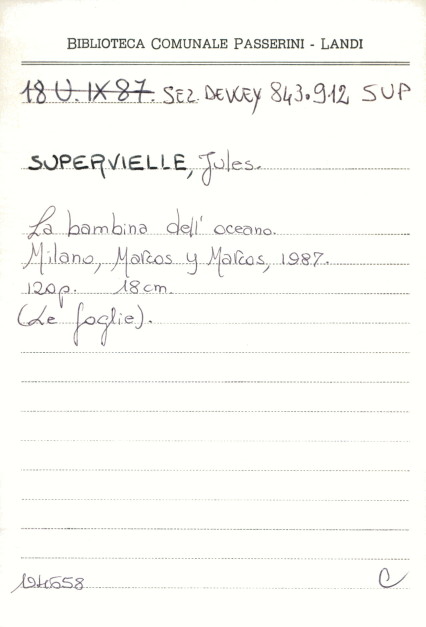 BIBLIOTECA COMUNALE PASSERINI - LANDI
18 U. IX 87. SEZ. DEWEY 843.912 SUP
SUPERVIELLE, Jules.
La bambina dell' oceano.
Milano, Marcos y Marcos, 1987.
120p. 18cm.
(Le foglie).
194558
C